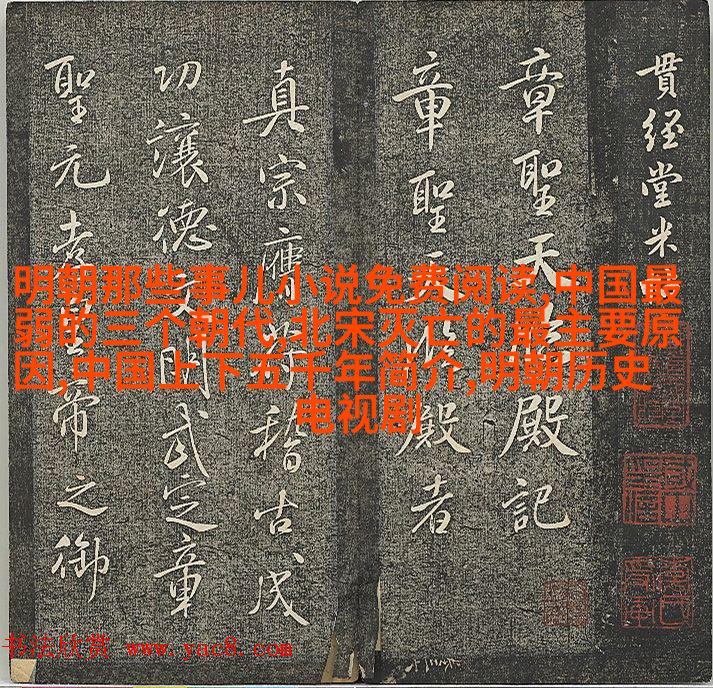 貫経堂米
章聖天臨殿記
章聖天臨殿者
真宗膺符稽古成
功讓德文明武定章
聖元孝皇帝之御
明朝那些事儿小说免费阅读,中国最
弱的三个朝代,北宋灭亡的最主要原
因,中国上下五千年简介,明朝历史
电视剧
书法欣赏 www.yac8.com